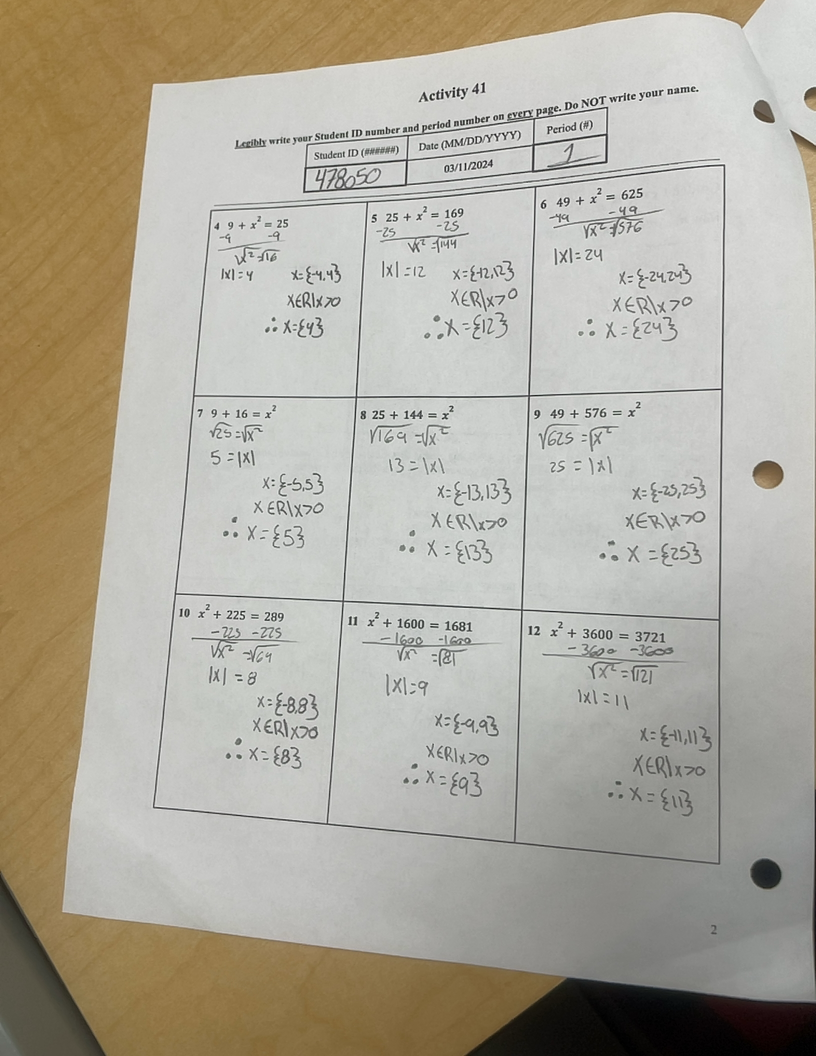 Activity 41
Legibly write your Student ID number and period number on every page. Do NOT write your name.
Student ID (######) Date (MM/DD/YYYY) Period (#)
478050 03/11/2024 1
4 9 + x² = 25
-9 -9
√x² = √16
|x| = 4 x = {-4,4}
x∈R|x>0
∴ x = {4}
5 25 + x² = 169
-25 -25
√x² = √144
|x| = 12 x = {-12,12}
x∈R|x>0
∴ x = {12}
6 49 + x² = 625
-49 -49
√x² = √576
|x| = 24
x = {-24,24}
x∈R|x>0
∴ x = {24}
7 9 + 16 = x²
√25 = √x²
5 = |x|
x = {-5,5}
x∈R|x>0
∴ x = {5}
8 25 + 144 = x²
√169 = √x²
13 = |x|
x = {-13,13}
x∈R|x>0
∴ x = {13}
9 49 + 576 = x²
√625 = √x²
25 = |x|
x = {-25,25}
x∈R|x>0
∴ x = {25}
10 x² + 225 = 289
-225 -225
√x² = √64
|x| = 8
x = {-8,8}
x∈R|x>0
∴ x = {8}
11 x² + 1600 = 1681
-1600 -1600
√x² = √81
|x| = 9
x = {-9,9}
x∈R|x>0
∴ x = {9}
12 x² + 3600 = 3721
-3600 -3600
√x² = √121
|x| = 11
x = {-11,11}
x∈R|x>0
∴ x = {11}
2